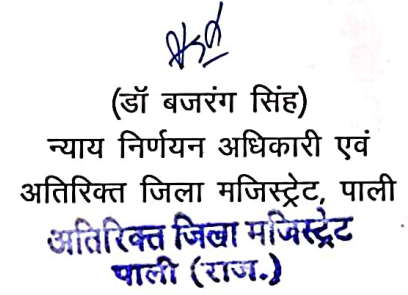 (डॉ बजरंग सिंह)
न्याय निर्णयन अधिकारी एवं
अतिरिक्त जिला मजिस्ट्रेट, पाली
अतिरिक्त जिला मजिस्ट्रेट
पाली (राज.)